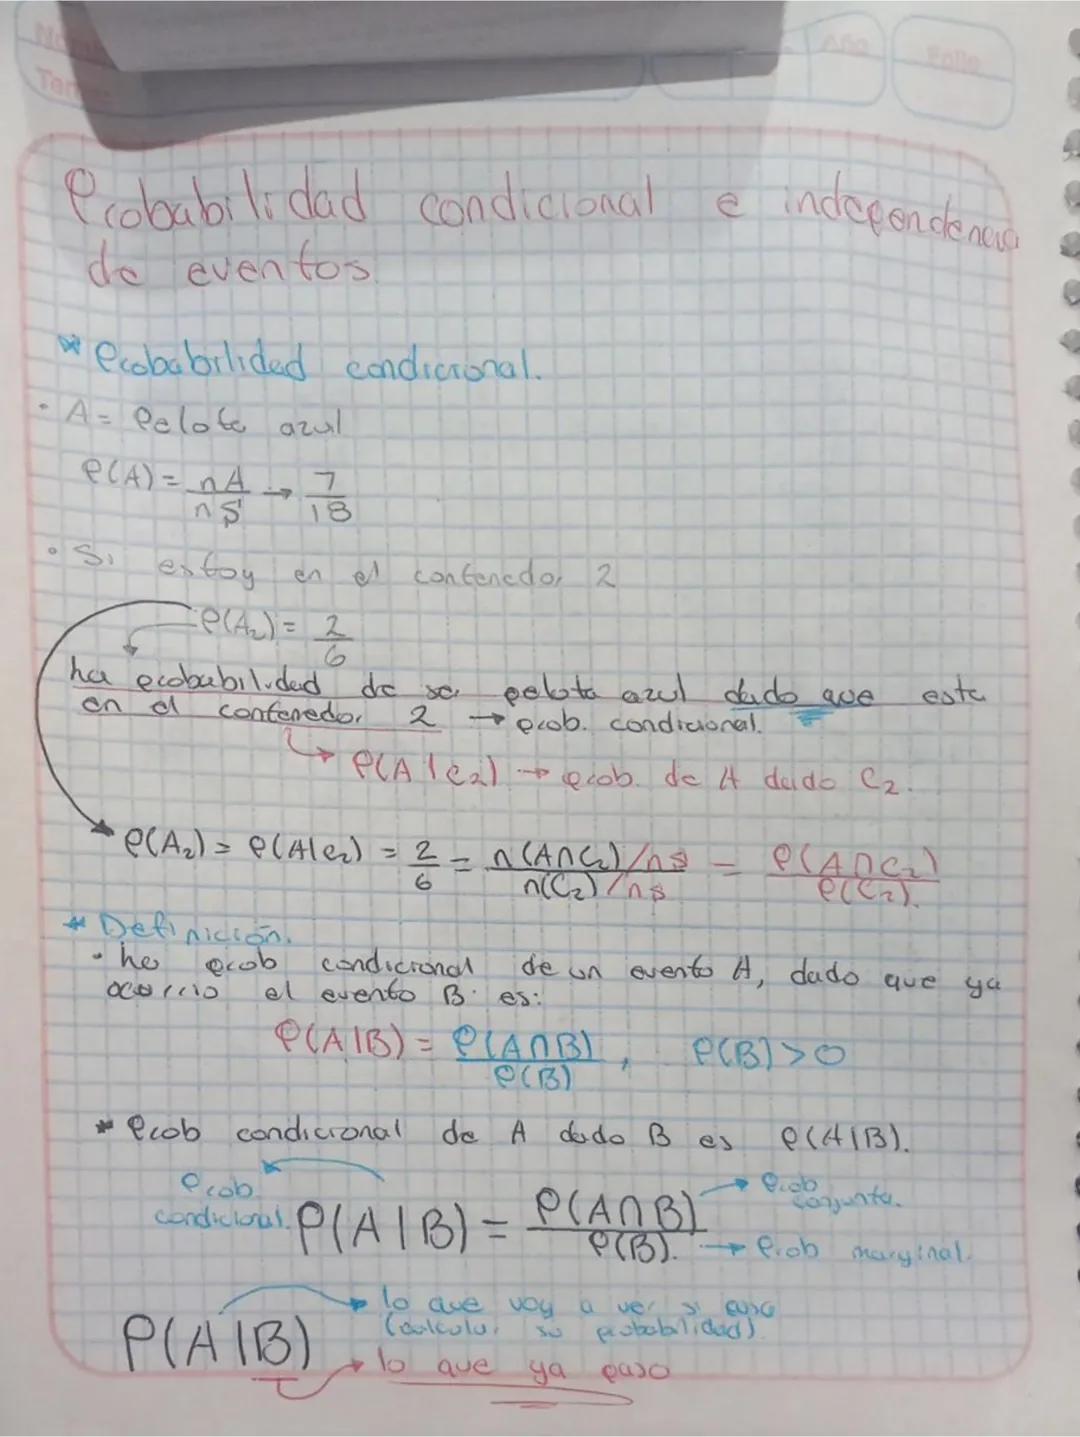 Año
Folio
Probabilidad condicional e independencia
de eventos.
* Probabilidad condicional.
· A = Pelota azul
P(A) = nA/nS → 7/18
· Si estoy en el contenedor 2
P(A₂) = 2/6
La probabilidad de ser pelota azul dado que este
en el contenedor 2 → prob. condicional.
↳ P(A|C₂) → prob. de A dado C₂.
P(A₂) = P(A|C₂) = 2/6 = n(A∩C₂)/nS / n(C₂)/nS = P(A∩C₂)/P(C₂).
* Definición.
· La prob condicional de un evento A, dado que ya
ocurrio el evento B es:
P(A|B) = P(A∩B)/P(B), P(B)>0
* Prob condicional de A dado B es P(A|B).
Prob condicional. P(A|B) = P(A∩B)/P(B). → Prob conjunta. → Prob marginal.
P(A|B) → lo que voy a ver si pasa
(calcular su probabilidad)
→ lo que ya paso